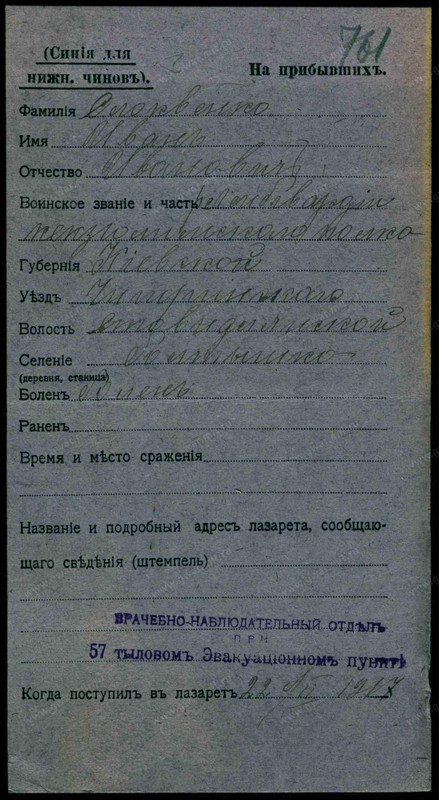 761
(Синія для
нижн. чиновъ).
На прибывшихъ.
Фамилія
Имя Иванъ
Отчество Ивановичъ
Воинское званіе и часть
полка
Губернія Кіевской
Уѣздъ Чигиринскаго
Волость
Селеніе
(деревня, станица)
Боленъ Боленъ
Раненъ
Время и мѣсто сраженія
Названіе и подробный адресъ лазарета, сообщаю-
щаго свѣдѣнія (штемпель)
ВРАЧЕБНО-НАБЛЮДАТЕЛЬНЫЙ ОТДѢЛЪ
ПРИ
57 тыловомъ Эвакуаціонномъ пунктѣ
Когда поступилъ въ лазаретъ 22 XI 1917